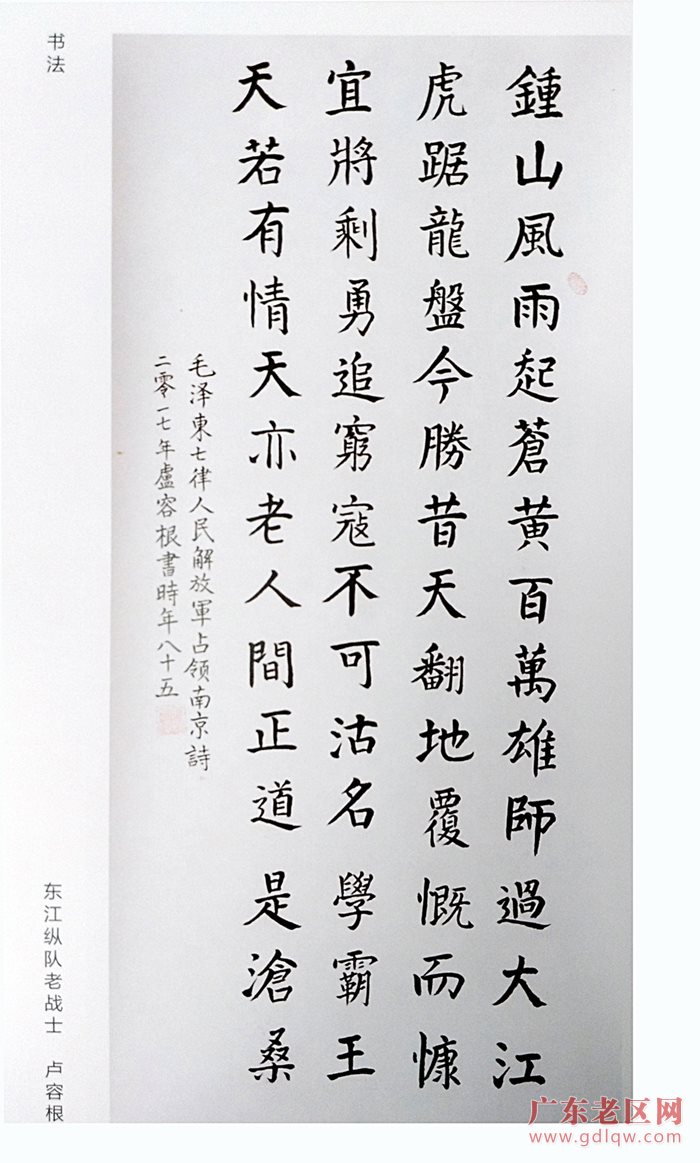 鍾山風雨起蒼黃百萬雄師過大江
虎踞龍盤今勝昔天翻地覆慨而慷
宜將剩勇追窮寇不可沽名學霸王
天若有情天亦老人間正道是滄桑
毛泽東七律人民解放軍占领南京詩
二零一七年盧容根書時年八十五
书法
东江纵队老战士 卢容根
广东老区网
www.gdlqw.com